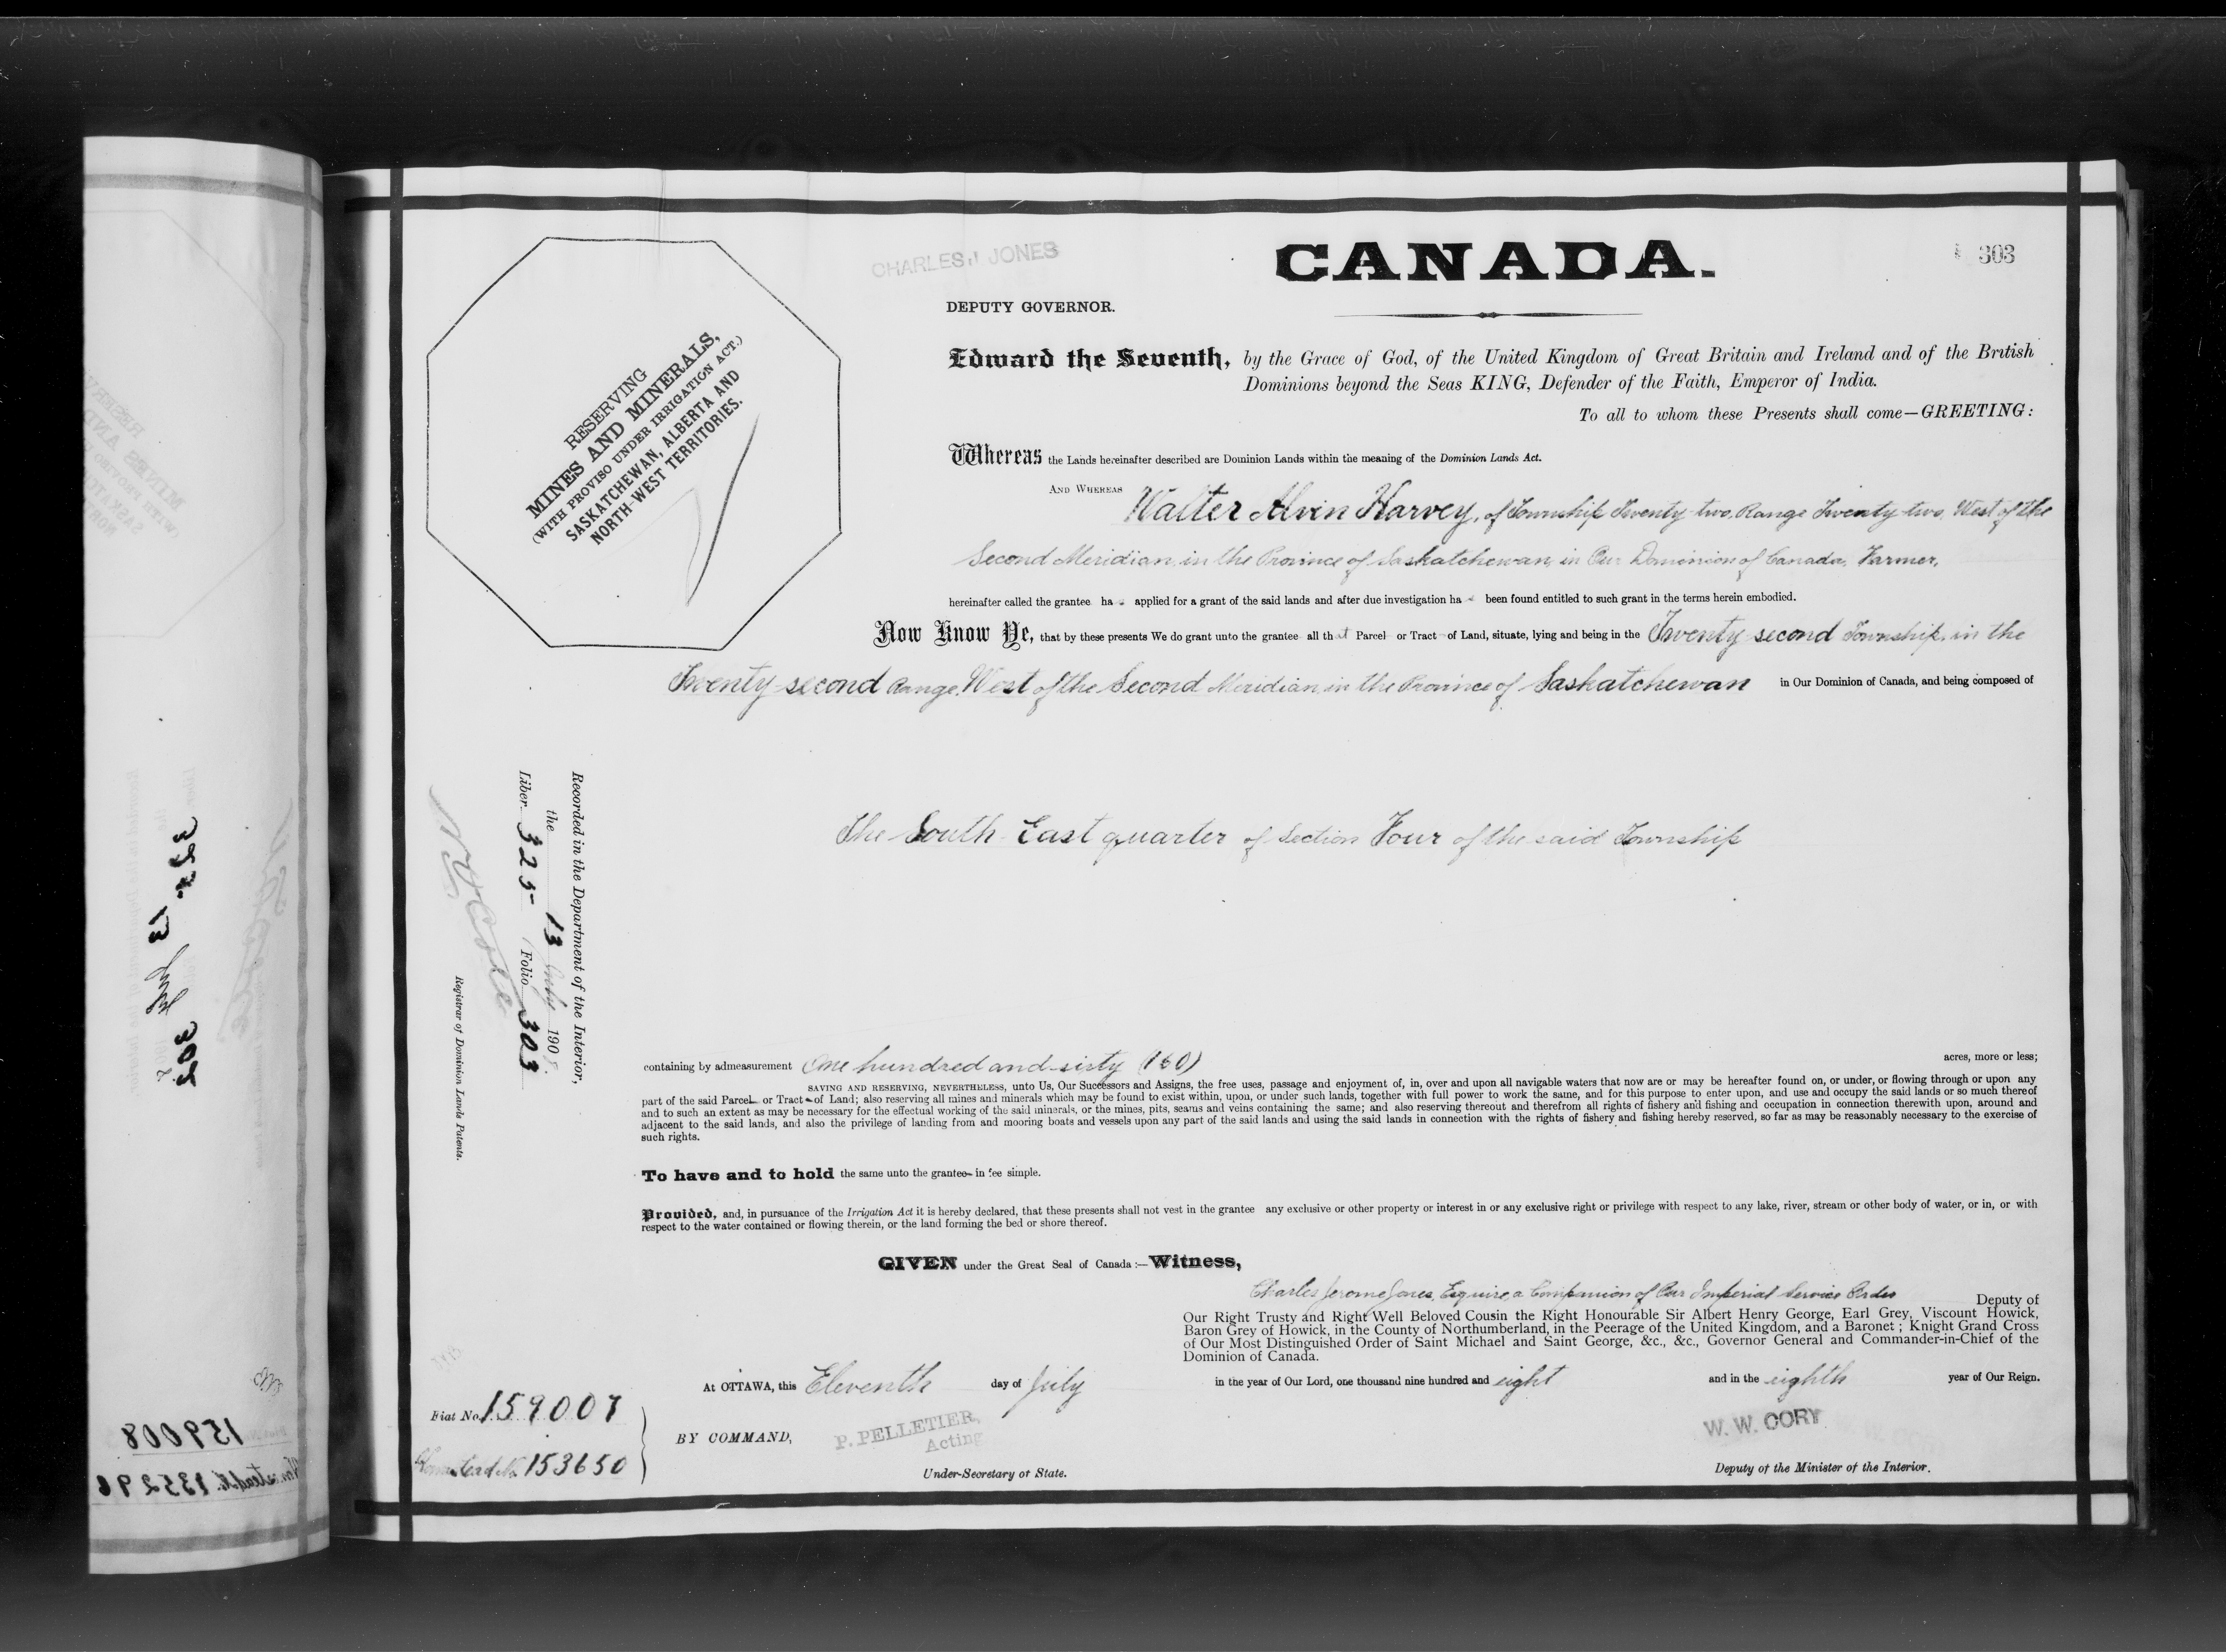 CHARLES J JONES
CANADA.
303
DEPUTY GOVERNOR.
RESERVING
MINES AND MINERALS,
(WITH PROVISO UNDER IRRIGATION ACT.)
SASKATCHEWAN, ALBERTA AND
NORTH-WEST TERRITORIES.
Edward the Seventh, by the Grace of God, of the United Kingdom of Great Britain and Ireland and of the British
Dominions beyond the Seas KING, Defender of the Faith, Emperor of India.
To all to whom these Presents shall come—GREETING:
Whereas the Lands hereinafter described are Dominion Lands within the meaning of the Dominion Lands Act.
AND WHEREAS Walter Alvin Harvey, of Township Twenty-two, Range Twenty-two, West of the
Second Meridian, in the Province of Saskatchewan, in Our Dominion of Canada, Farmer,
hereinafter called the grantee has applied for a grant of the said lands and after due investigation has been found entitled to such grant in the terms herein embodied.
Now Know Ye, that by these presents We do grant unto the grantee all that Parcel or Tract of Land, situate, lying and being in the Twenty-second Township, in the
Twenty-second Range, West of the Second Meridian, in the Province of Saskatchewan in Our Dominion of Canada, and being composed of
The South East quarter of Section Four of the said Township
Recorded in the Department of the Interior,
the 13 July 1908
Liber 325 Folio 303
Registrar of Dominion Lands Patents.
containing by admeasurement One hundred and sixty (160) acres, more or less;
SAVING AND RESERVING, NEVERTHELESS, unto Us, Our Successors and Assigns, the free uses, passage and enjoyment of, in, over and upon all navigable waters that now are or may be hereafter found on, or under, or flowing through or upon any
part of the said Parcel or Tract of Land; also reserving all mines and minerals which may be found to exist within, upon, or under such lands, together with full power to work the same, and for this purpose to enter upon, and use and occupy the said lands or so much thereof
and to such an extent as may be necessary for the effectual working of the said minerals, or the mines, pits, seams and veins containing the same; and also reserving thereout and therefrom all rights of fishery and fishing and occupation in connection therewith upon, around and
adjacent to the said lands, and also the privilege of landing from and mooring boats and vessels upon any part of the said lands and using the said lands in connection with the rights of fishery and fishing hereby reserved, so far as may be reasonably necessary to the exercise of
such rights.
To have and to hold the same unto the grantee in fee simple.
Provided, and, in pursuance of the Irrigation Act it is hereby declared, that these presents shall not vest in the grantee any exclusive or other property or interest in or any exclusive right or privilege with respect to any lake, river, stream or other body of water, or in, or with
respect to the water contained or flowing therein, or the land forming the bed or shore thereof.
GIVEN under the Great Seal of Canada :—Witness,
Charles Jerome Jones, Esquire, a Companion of Our Imperial Service Order Deputy of
Our Right Trusty and Right Well Beloved Cousin the Right Honourable Sir Albert Henry George, Earl Grey, Viscount Howick,
Baron Grey of Howick, in the County of Northumberland, in the Peerage of the United Kingdom, and a Baronet ; Knight Grand Cross
of Our Most Distinguished Order of Saint Michael and Saint George, &c., &c., Governor General and Commander-in-Chief of the
Dominion of Canada.
At OTTAWA, this Eleventh day of July in the year of Our Lord, one thousand nine hundred and eight and in the eighth year of Our Reign.
Fiat No. 159007
Homestead No. 153650
BY COMMAND,
P. PELLETIER,
Acting
Under-Secretary of State.
W. W. CORY
Deputy of the Minister of the Interior.
159008
Homestead No. 135296